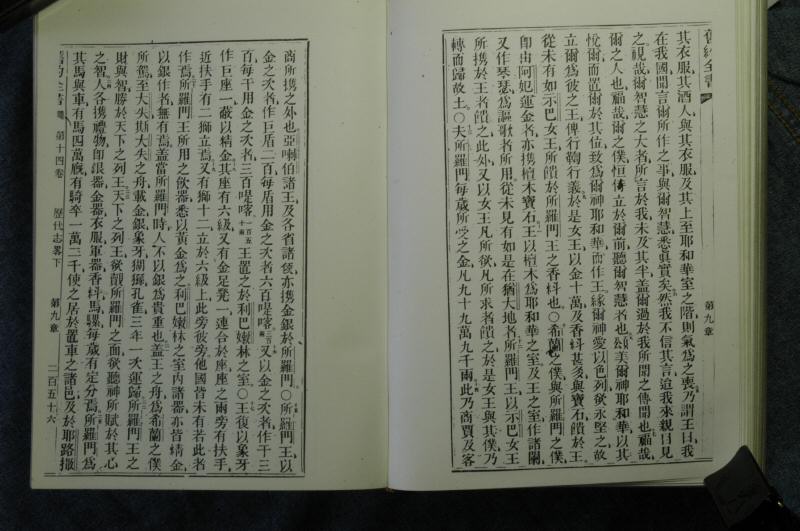 舊約全書
第九章
其衣服其酒人與其衣服及其上至耶和華室之階則氣為之喪乃謂王曰我
在我國聞言爾所作之事與爾智慧悉眞實矣然我不信其言迨我來親目見
之視哉爾智慧之大者所言於我未及其半蓋爾過於我所聞之傳聞也福哉
爾之人也福哉爾之僕恒侍立於爾前聽爾智慧者也頌美爾神耶和華以其
悅爾而置爾於其位致為爾神耶和華而作王緣爾神愛以色列欲永堅之故
立爾為彼之王俾行鞫行義於是女王以金十萬及香料甚多與寶石饋於王
從未有如示巴女王所饋於所羅門王之香料也○希蘭之僕與所羅門之僕
即由阿妃運金者亦攜檀木寶石王以檀木為耶和華之室及王之室作諸闌
又作琴瑟為謳歌者所用從未見有如是在猶大地者所羅門王以示巴女王
所攜於王者饋之此外又以女王凡所欲凡所求者饋之於是女王與其僕乃
轉而歸故土○夫所羅門每歲所受之金凡九十九萬九千兩此乃商賈及客
商所攜之外也亞喇伯諸王及各省諸侯亦攜金銀於所羅門○所羅門王以
金之次者作巨盾二百每盾用金之次者六百喼喀又以金之次者作干三
百每干用金之次者三百喼喀王置之於利巴嫩林之室○王復以象牙
作巨座一蔽以精金其座有六級又有金足凳一連合於座座之兩旁有扶手
近扶手有二獅立焉又有獅十二立於六級上此旁彼旁他國皆未有若此者
作焉所羅門王所用之飲器悉以黃金為之利巴嫩林之室內諸器亦皆精金
以銀作者無有焉蓋當所羅門時人不以銀為貴重也蓋王之舟為希蘭之僕
所駕至大失斯大失之舟載金銀象牙猢猻孔雀三年一次運歸所羅門王之
財與智勝於天下之列王天下之列王欲覿所羅門之面欲聽神所賦於其心
之智人各攜禮物即銀器金器衣服軍器香料馬騾每歲有定分焉所羅門為
其馬與車有馬四萬廐有騎卒一萬二千使之居於置車之諸邑及於耶路撒
第十四卷
歷代志畧下
第九章
二百五十六